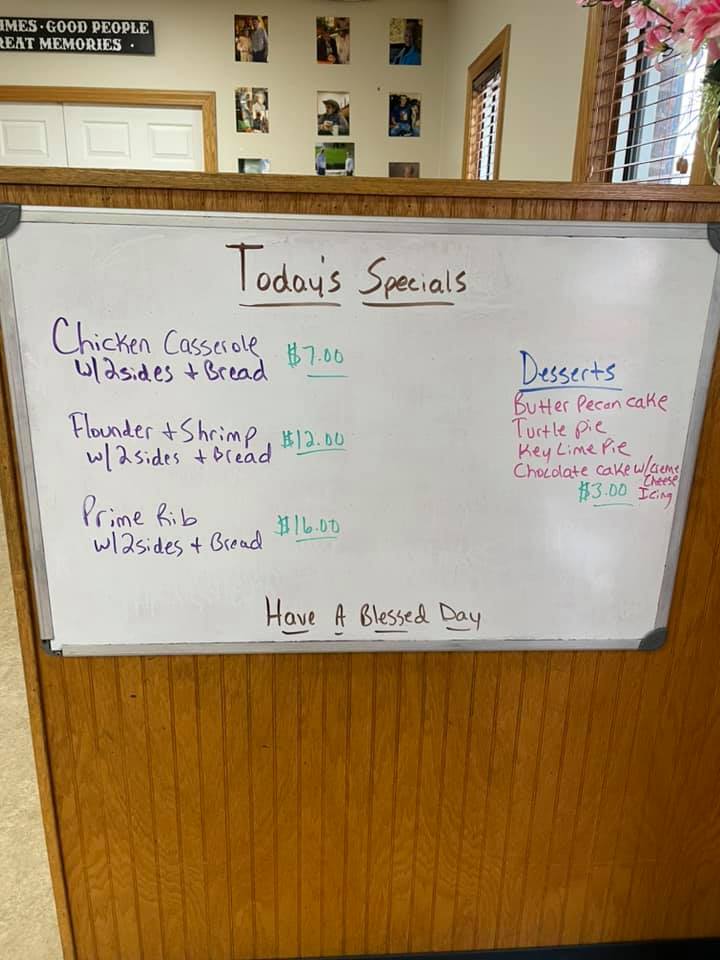 IMES · GOOD PEOPLE
REAT MEMORIES ·
Today's Specials
Chicken Casserole $7.00
w/2sides + Bread
Flounder + Shrimp $12.00
w/2sides + Bread
Prime Rib $16.00
w/2sides + Bread
Desserts
Butter Pecan cake
Turtle pie
Key Lime Pie
Chocolate cake w/creme
Cheese
$3.00 Icing
Have A Blessed Day